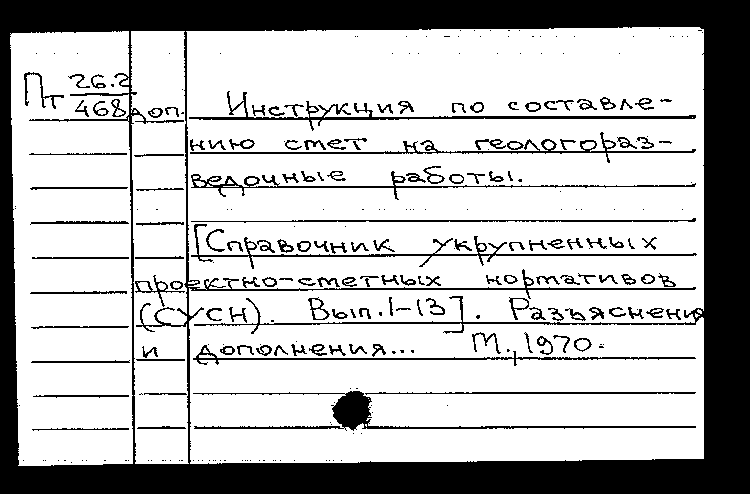 Пт 26.2
468 доп. Инструкция по составле-
нию смет на геологораз-
ведочные работы.
[Справочник укрупненных
проектно-сметных нормативов
(СУСН). Вып. 1-13]. Разъяснения
и дополнения... М., 1970.